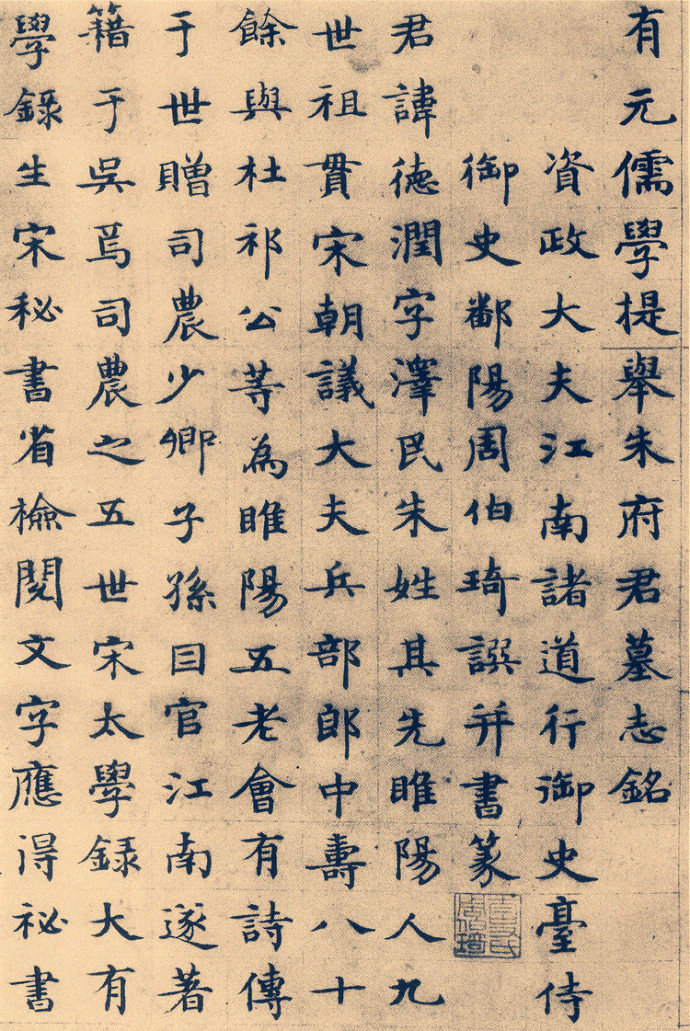 有元儒學提舉朱府君墓志銘
資政大夫江南諸道行御史臺侍
御史鄱陽周伯琦譔并書篆
君諱德潤字澤民朱姓其先睢陽人九
世祖貫宋朝議大夫兵部郎中壽八十
餘與杜祁公等為睢陽五老會有詩傳
于世贈司農少卿子孫因官江南遂著
籍于吳焉司農之五世宋太學録大有
學録生宋秘書省檢閱文字應得祕書